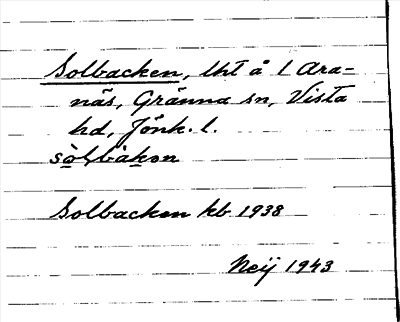 Solbacken, lht å 1 Ara=
näs, Gränna sn, Vista
hd, Jönk. l.
sòlbàkən
Solbacken kb 1938
Neij 1943